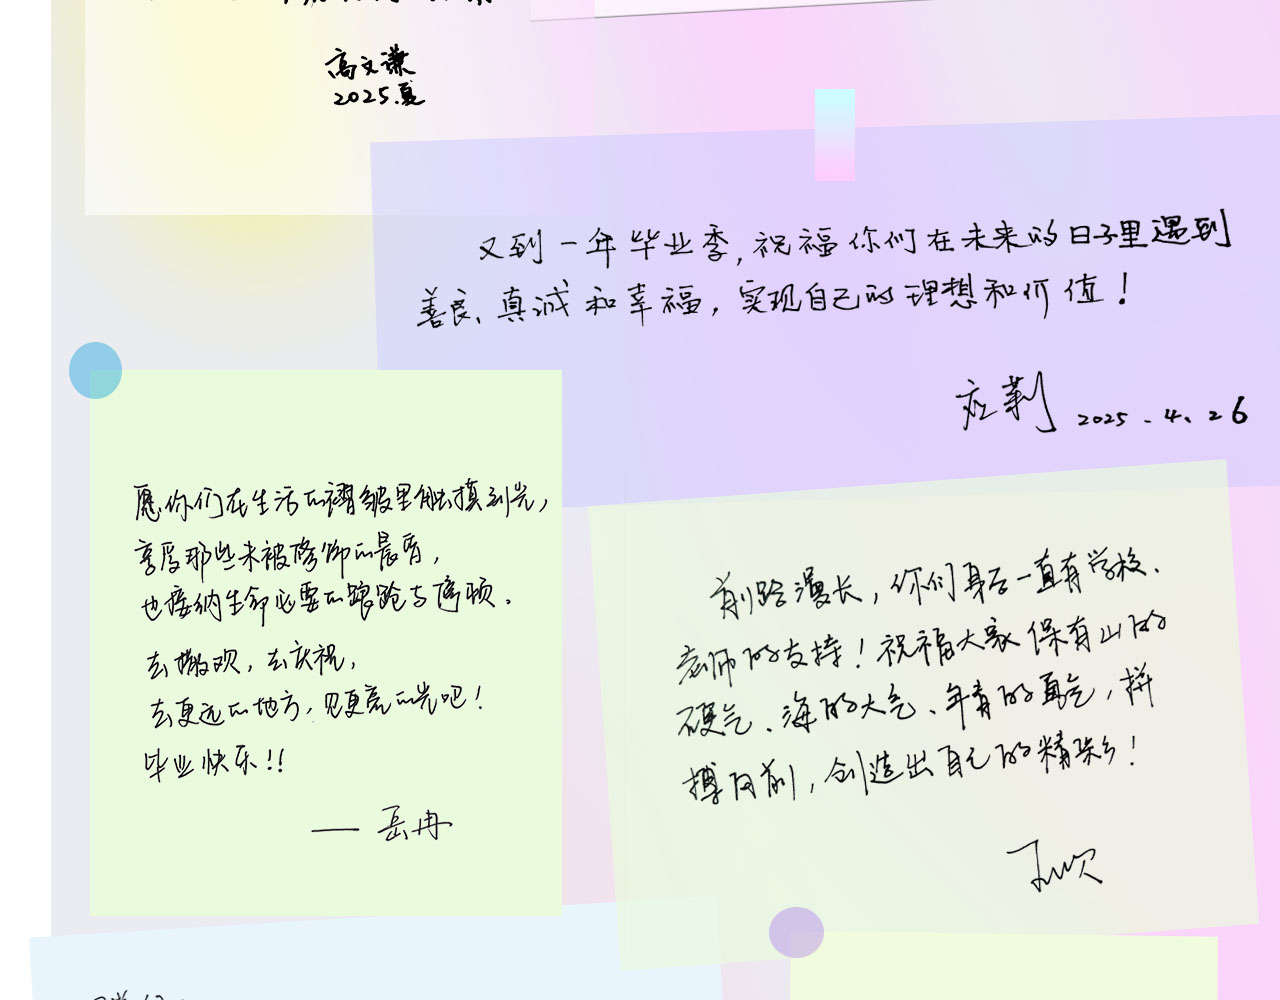 高文谦
2025.夏
又到一年毕业季,祝福你们在未来的日子里遇到
善良、真诚和幸福,实现自己的理想和价值!
莉 2025.4.26
愿你们在生活的褶皱里触摸到光,
享受那些未被修饰的晨昏,
也接纳生命必要的踉跄与停顿。
去撒欢,去庆祝,
去更远的地方,见更亮的光吧!
毕业快乐!!
—— 岳冉
前路漫长,你们身后一直有学校、
老师的支持!祝福大家保有山的
硬气、海的大气、年青的勇气,拼
搏向前,创造出自己的精彩!